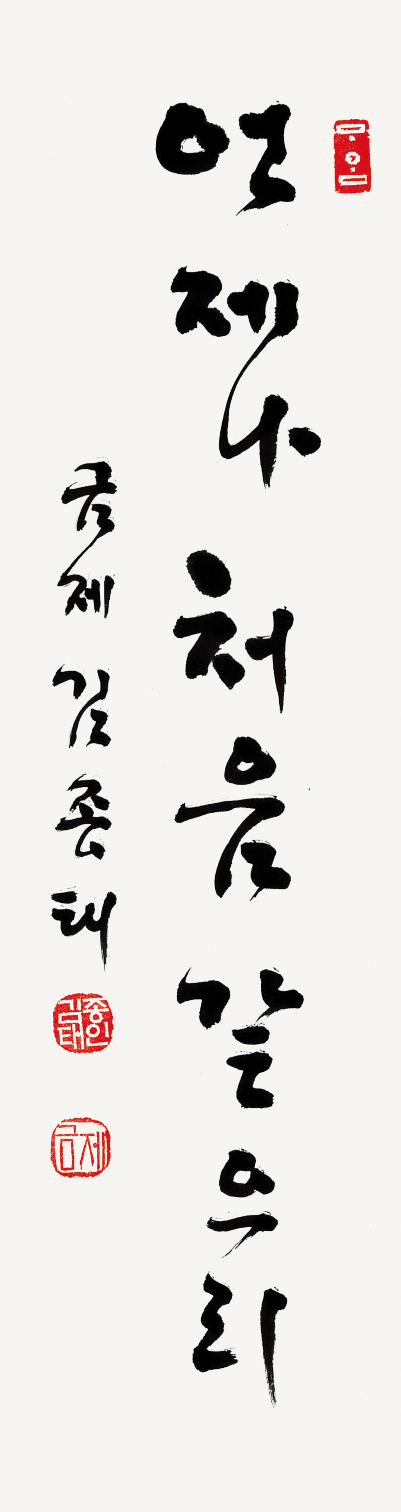 언제나 처음 같으리
금제 김종태
김종태인
금제